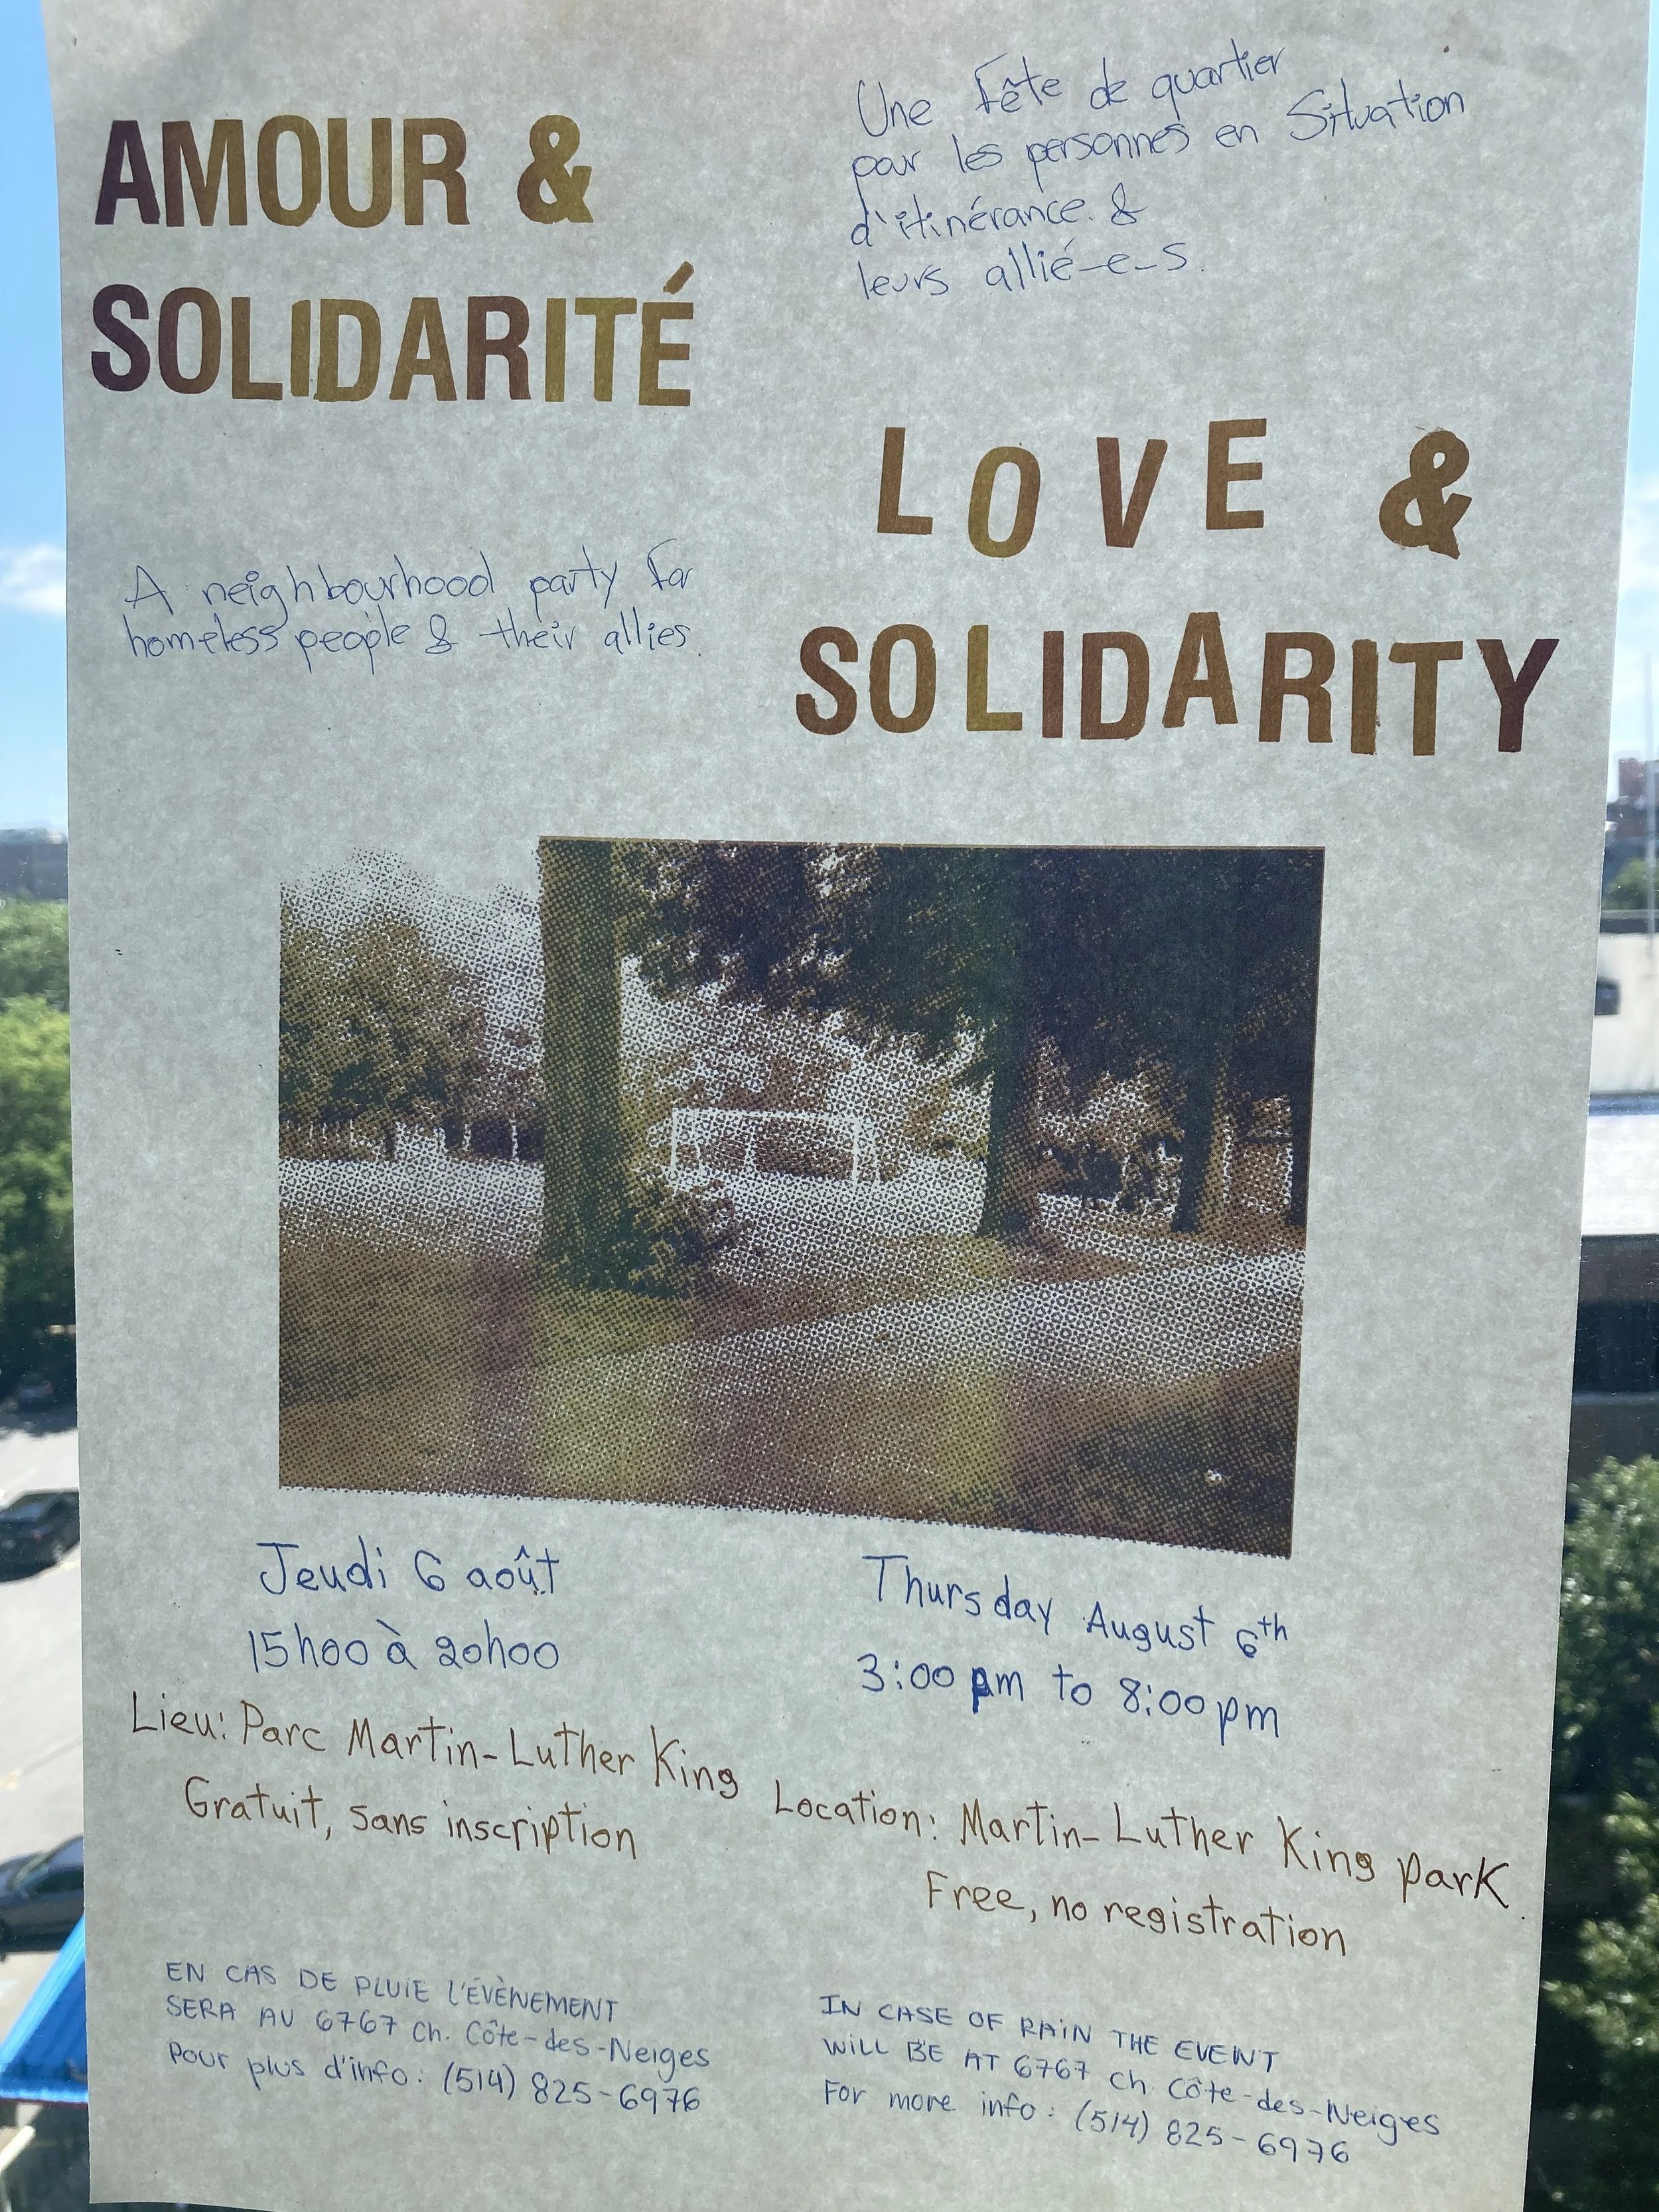 AMOUR &
SOLIDARITÉ
Une fête de quartier
pour les personnes en Situation
d'itinérance. &
leurs allié-e-s.
LOVE &
SOLIDARITY
A neighbourhood party for
homeless people & their allies.
Jeudi 6 août
15h00 à 20h00
Lieu: Parc Martin-Luther King
Gratuit, sans inscription
Thursday August 6th
3:00 pm to 8:00 pm
Location: Martin-Luther King park
Free, no registration
EN CAS DE PLUIE L'ÉVÈNEMENT
SERA AU 6767 Ch. Côte-des-Neiges
Pour plus d'info: (514) 825-6976
IN CASE OF RAIN THE EVENT
WILL BE AT 6767 Ch. Côte-des-Neiges
For more info: (514) 825-6976